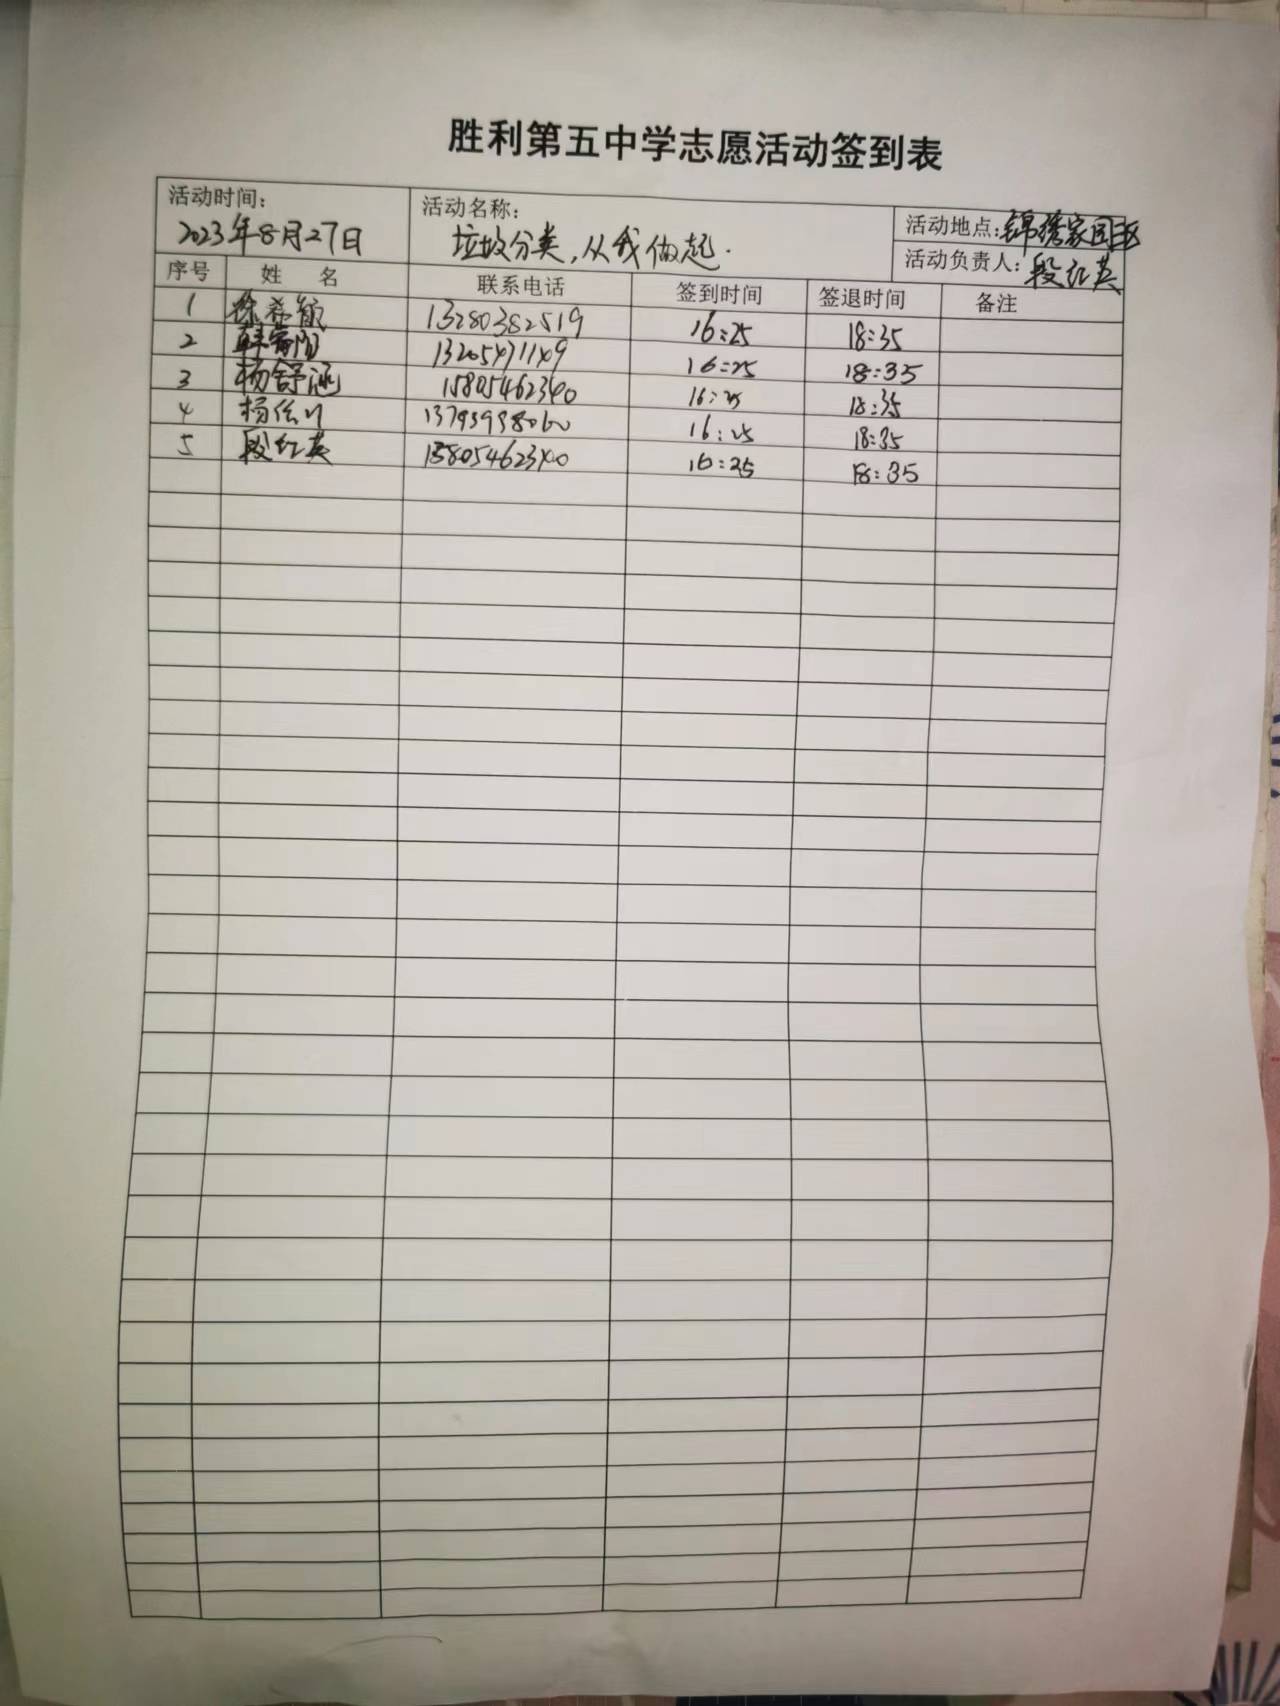 胜利第五中学志愿活动签到表
活动时间: 2023年8月27日
活动名称: 垃圾分类,从我做起.
活动地点: 锦绣家园
活动负责人: 段红英
序号 姓 名 联系电话 签到时间 签退时间 备注
1 徐希航 13280382519 16:25 18:35
2 16:25 18:35
3 杨舒涵 15805462340 16:25 18:35
4 16:25 18:35
5 段红英 15805462340 16:25 18:35